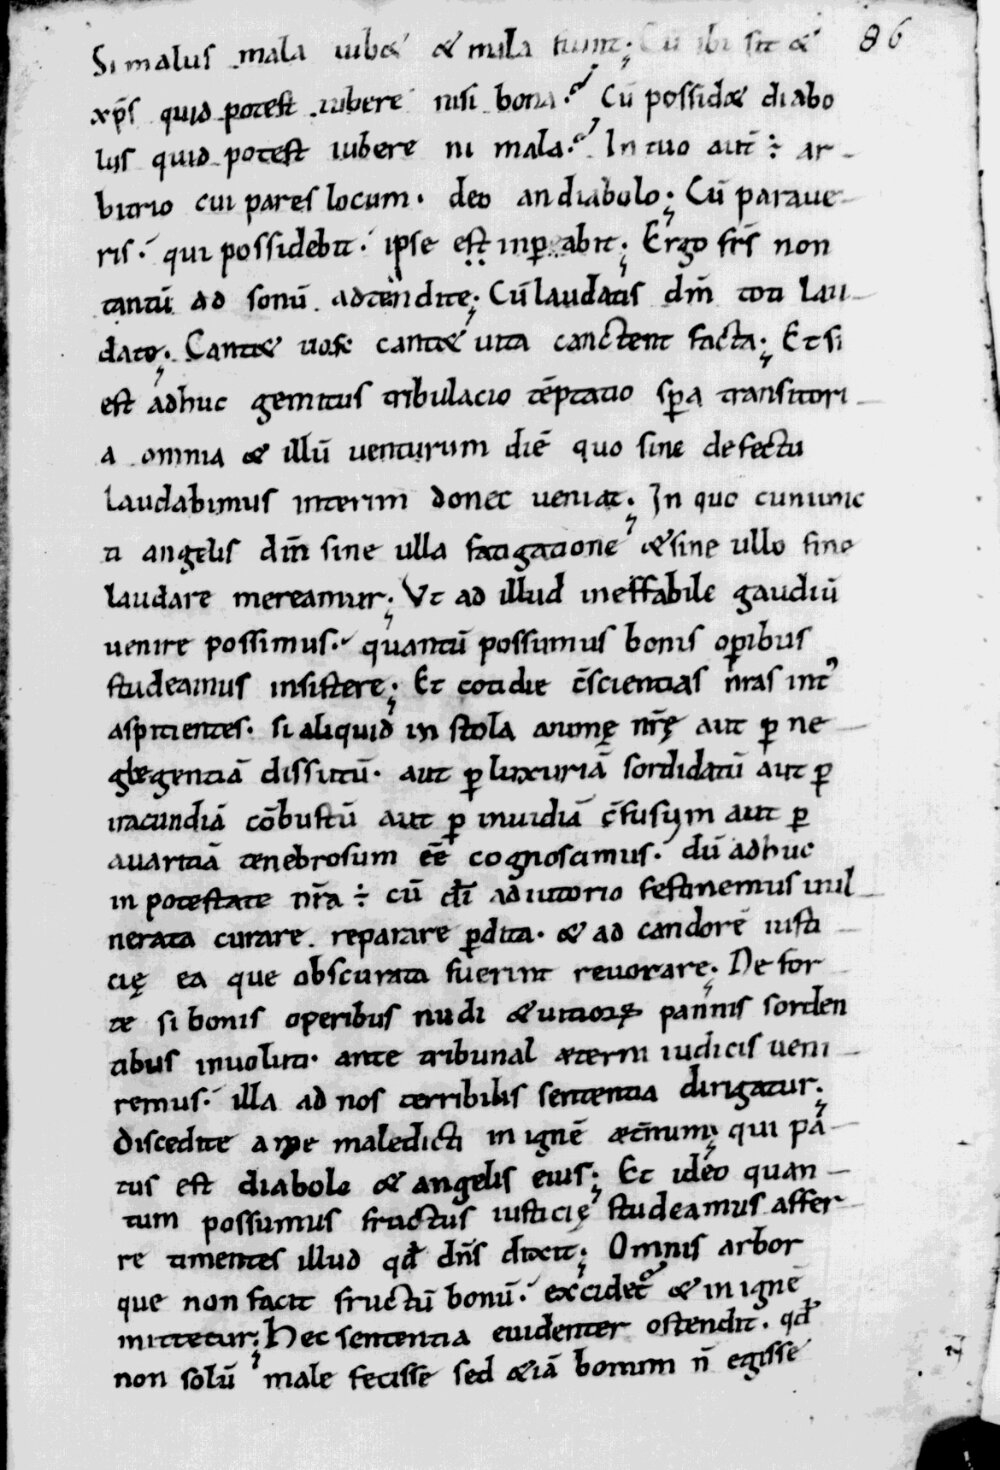 86
Si malus mala iub& & mala fiunt; Cū ibi sit &
xp̄s quid potest iubere nisi bona. Cū possid& diabo
lus quid potest iubere ni mala. In tuo aut̄ ÷ ar-
bitrio cui pares locum. deo an diabolo; Cū paraue-
ris. qui possidebit. ipse est imꝑabit; Ergo fr̄s non
tantū ad sonū adtendite; Cū laudatis dm̄ toti lau-
date; Cant& uox cant& uita canctent facta; Et si
est adhuc gemitus tribulacio tēptatio sꝑa transitori-
a omnia & illū uenturum diē quo sine defectu
laudabimus interim donec ueniat; In quo cum unic
ti angelis dm̄ sine ulla fatigatione & sine ullo fine
laudare mereamur; Ut ad illud ineffabile gaudiū
uenire possimus. quantū possumus bonis oꝑibus
studeamus insistere; Et cotidie c̄scientias nr̄as int'
aspitientes. si aliquid in stola animę nr̄ę aut ꝑ ne-
glegentiā dissutū. aut ꝑ luxuriā sordidatū aut ꝑ
iracundiā cōbustū aut ꝑ inuidiā c̄fusum aut ꝑ
auaritiā tenebrosum eē cognoscimus. dū adhuc
in potestate nr̄a ÷ cū dī adiutorio festinemus uul-
nerata curare. reparare ꝑdita. & ad candorē iusti-
cię ea que obscurata fuerint reuocare; Ne for-
te si bonis operibus nudi & uitioꝝ pannis sorden
tibus inuoluti. ante tribunal æterni iudicis ueni-
remus. illa ad nos terribilis sententia dirigatur;
Discedite a me maledicti in ignē æt̄num; qui pa-
tus est diabolo & angelis eius; Et ideo quan-
tum possumus fructus iusticię studeamus affer-
re timentes illud qđ dn̄s dixit; Omnis arbor
que non facit fructū bonū. excidet & in ignē
mittetur; Hec sententia euidenter ostendit. qđ
non solū male fecisse sed &iā bonum n̄ egisse